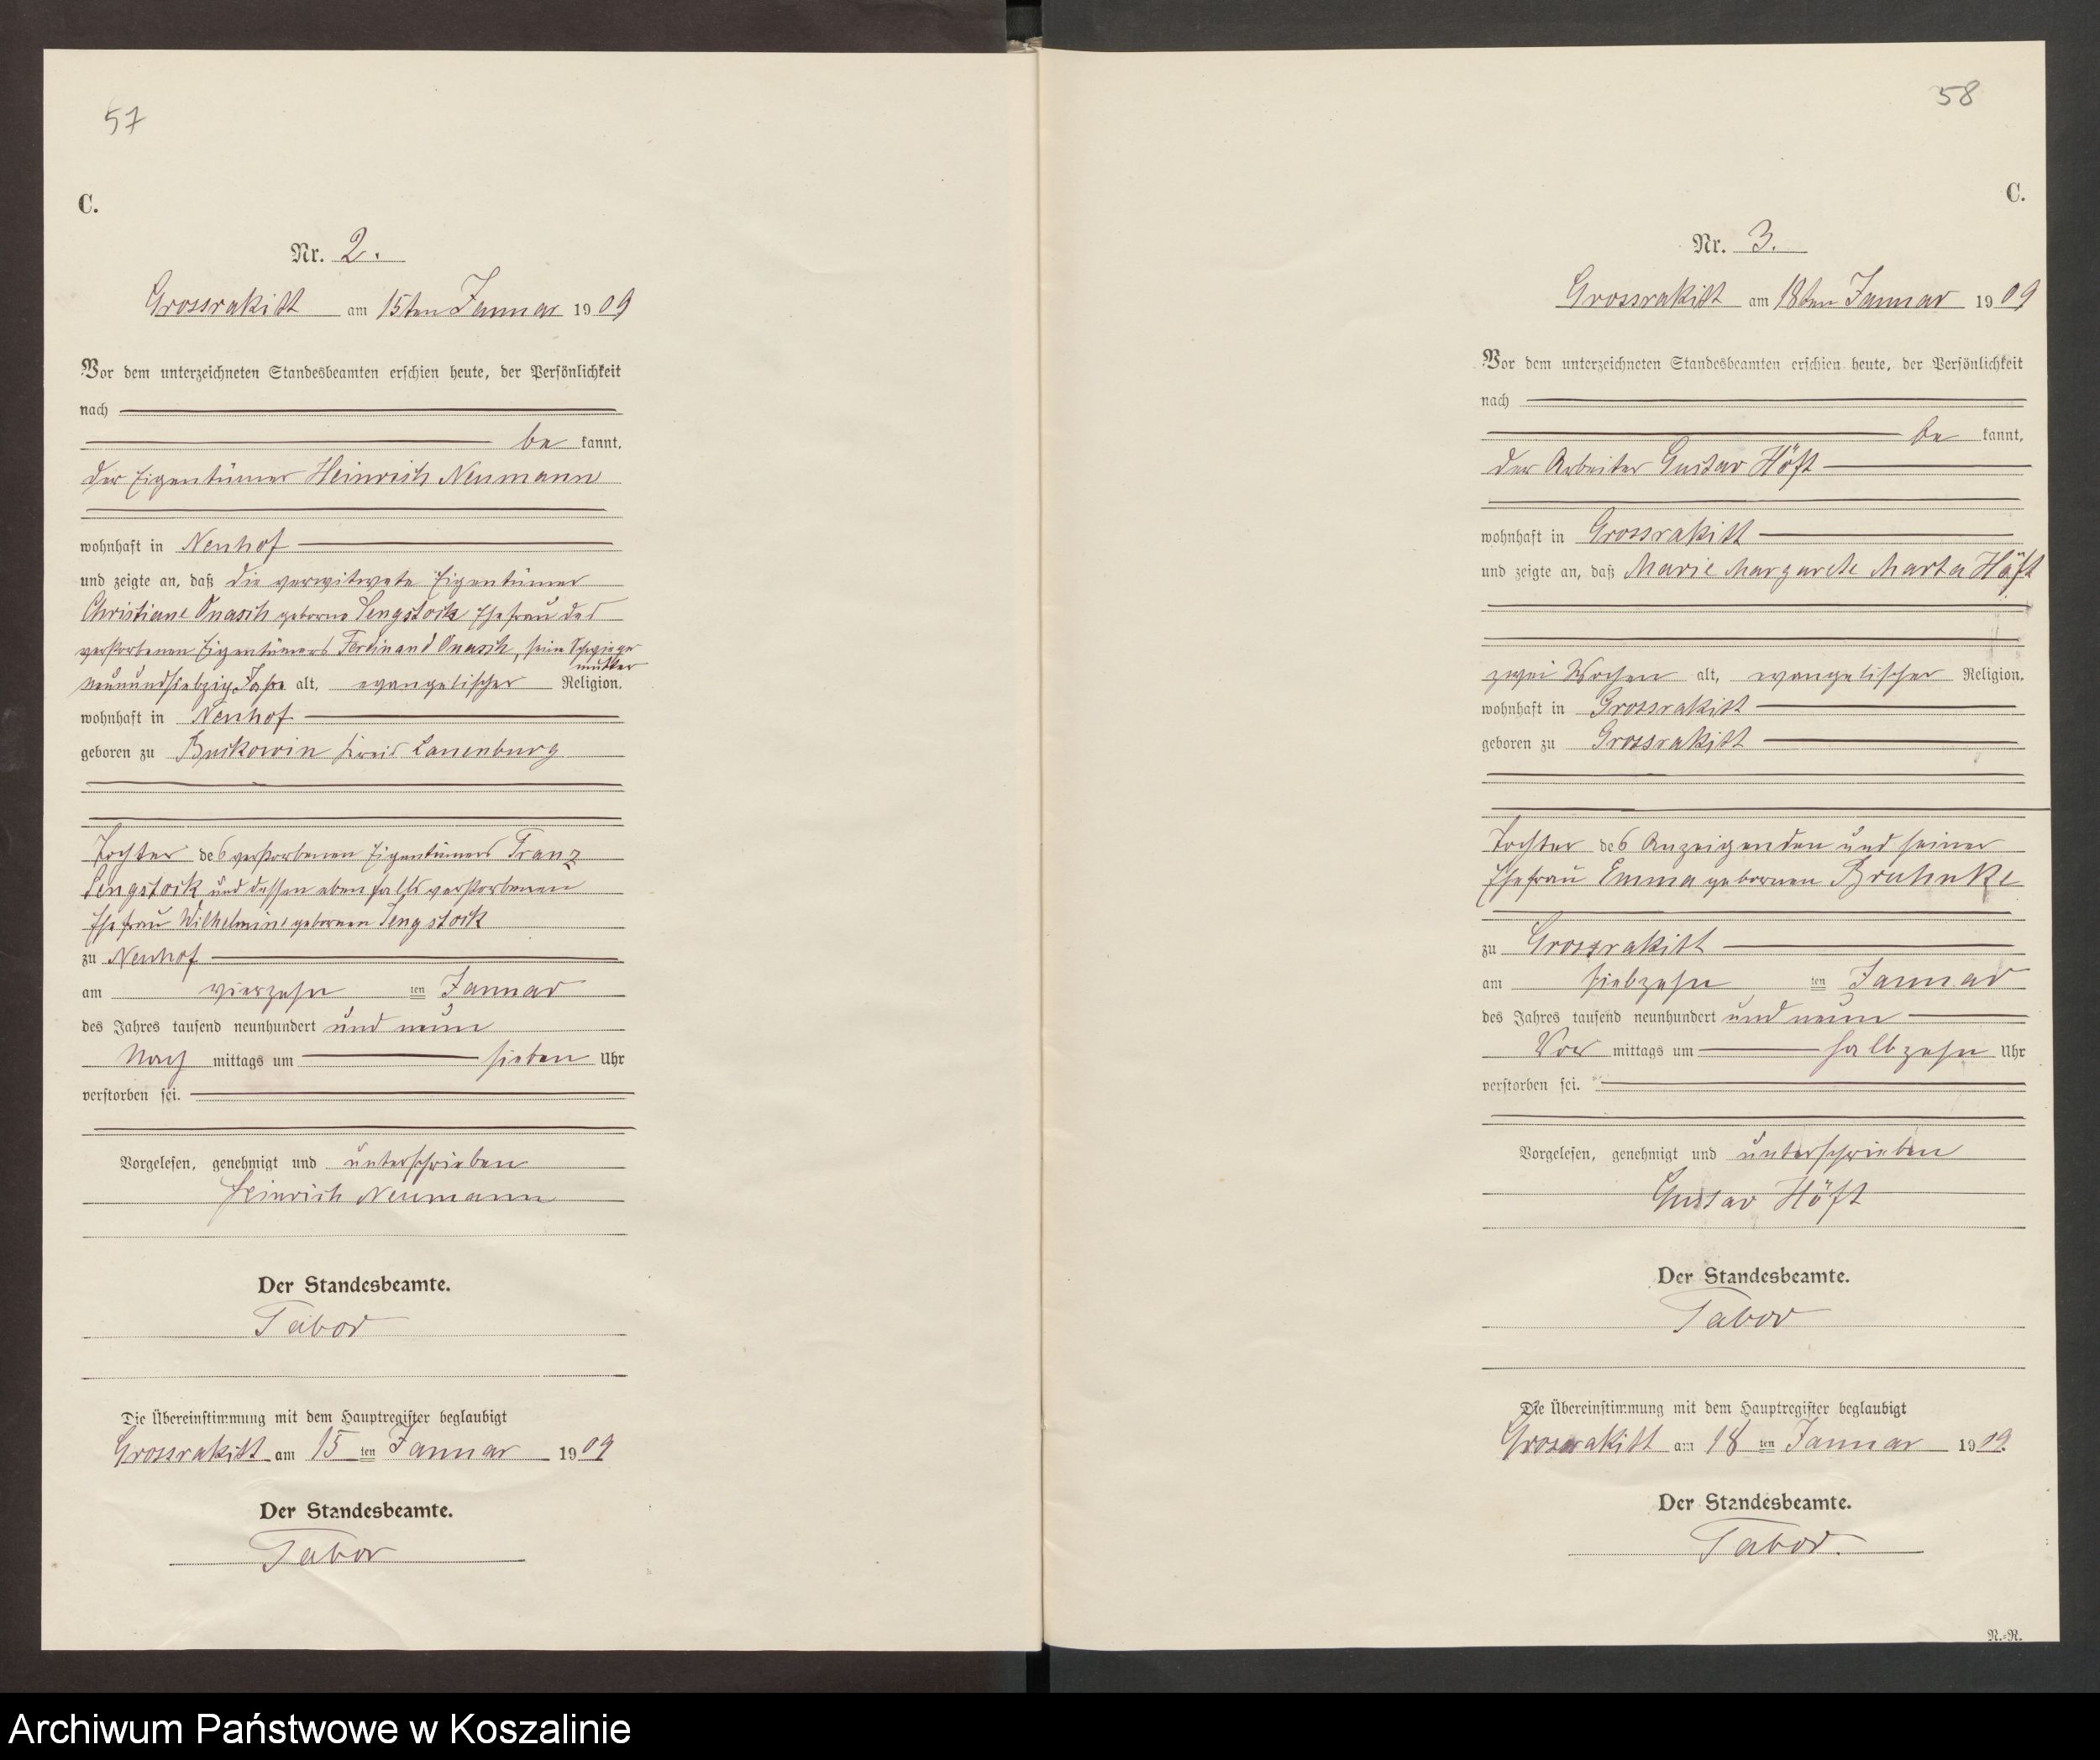 57
C.
Nr. 2.
Grossrakitt am 15ten Januar 1909
Vor dem unterzeichneten Standesbeamten erschien heute, der Persönlichkeit
nach
be kannt,
der Eigentümer Heinrich Neumann
wohnhaft in Neuhof
und zeigte an, daß die verwitwete Eigentümer
Christiane Onasch geborne Sengstock Ehefrau des
verstorbenen Eigentümers Ferdinand Onasch, seine Schwieger
mutter
neunundsiebzig Jahre alt, evangelischer Religion,
wohnhaft in Neuhof
geboren zu Buckowin Kreis Lauenburg
Tochter des verstorbenen Eigentümers Franz
Sengstock und dessen ebenfalls verstorbenen
Ehefrau Wilhelmine gebornen Sengstock
zu Neuhof
am vierzehn ten Januar
des Jahres tausend neunhundert und neun
Nach mittags um sieben Uhr
verstorben sei.
Vorgelesen, genehmigt und unterschrieben
Heinrich Neumann
Der Standesbeamte.
Tabor
Die Übereinstimmung mit dem Hauptregister beglaubigt
Grossrakitt am 15 ten Januar 1909
Der Standesbeamte.
Tabor
58
C.
Nr. 3.
Grossrakitt am 18ten Januar 1909
Vor dem unterzeichneten Standesbeamten erschien heute, der Persönlichkeit
nach
be kannt,
der Arbeiter Gustav Höft
wohnhaft in Grossrakitt
und zeigte an, daß Marie Margarete Marta Höft
zwei Wochen alt, evangelischer Religion,
wohnhaft in Grossrakitt
geboren zu Grossrakitt
Tochter des Anzeigenden und seiner
Ehefrau Emma gebornen Bruhnke
zu Grossrakitt
am siebzehn ten Januar
des Jahres tausend neunhundert und neun
Vor mittags um halbzehn Uhr
verstorben sei.
Vorgelesen, genehmigt und unterschrieben
Gustav Höft
Der Standesbeamte.
Tabor
Die Übereinstimmung mit dem Hauptregister beglaubigt
Grossrakitt am 18 ten Januar 1909.
Der Standesbeamte.
Tabor.
N.-R.
Archiwum Państwowe w Koszalinie